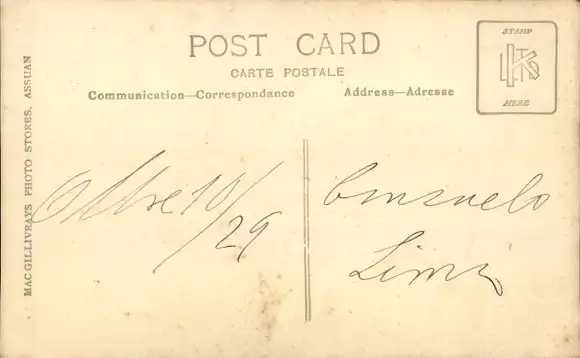 POST CARD
CARTE POSTALE
Communication—Correspondance
Address—Adresse
STAMP
HERE
MAC GILLIVRAYS PHOTO STORES. ASSUAN
10/29
Consuelo
Lima